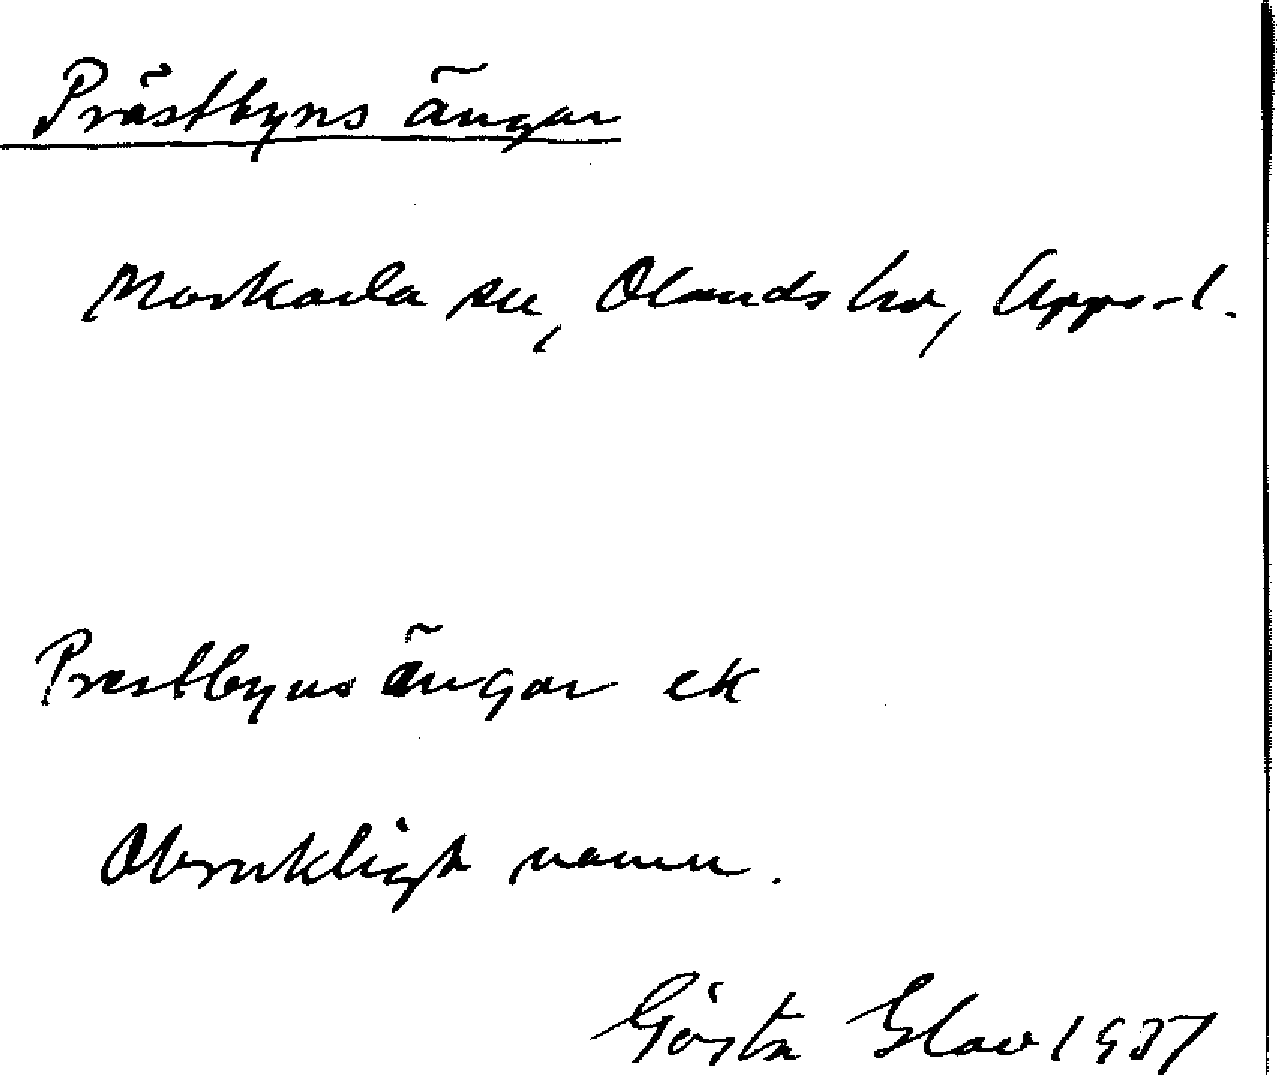 Prästbyns ängar
Morkarla sn, Olands hd, Uppsl.
Prestbyns ängar ek
Obrukligt namn.
Gösta Glav 1937